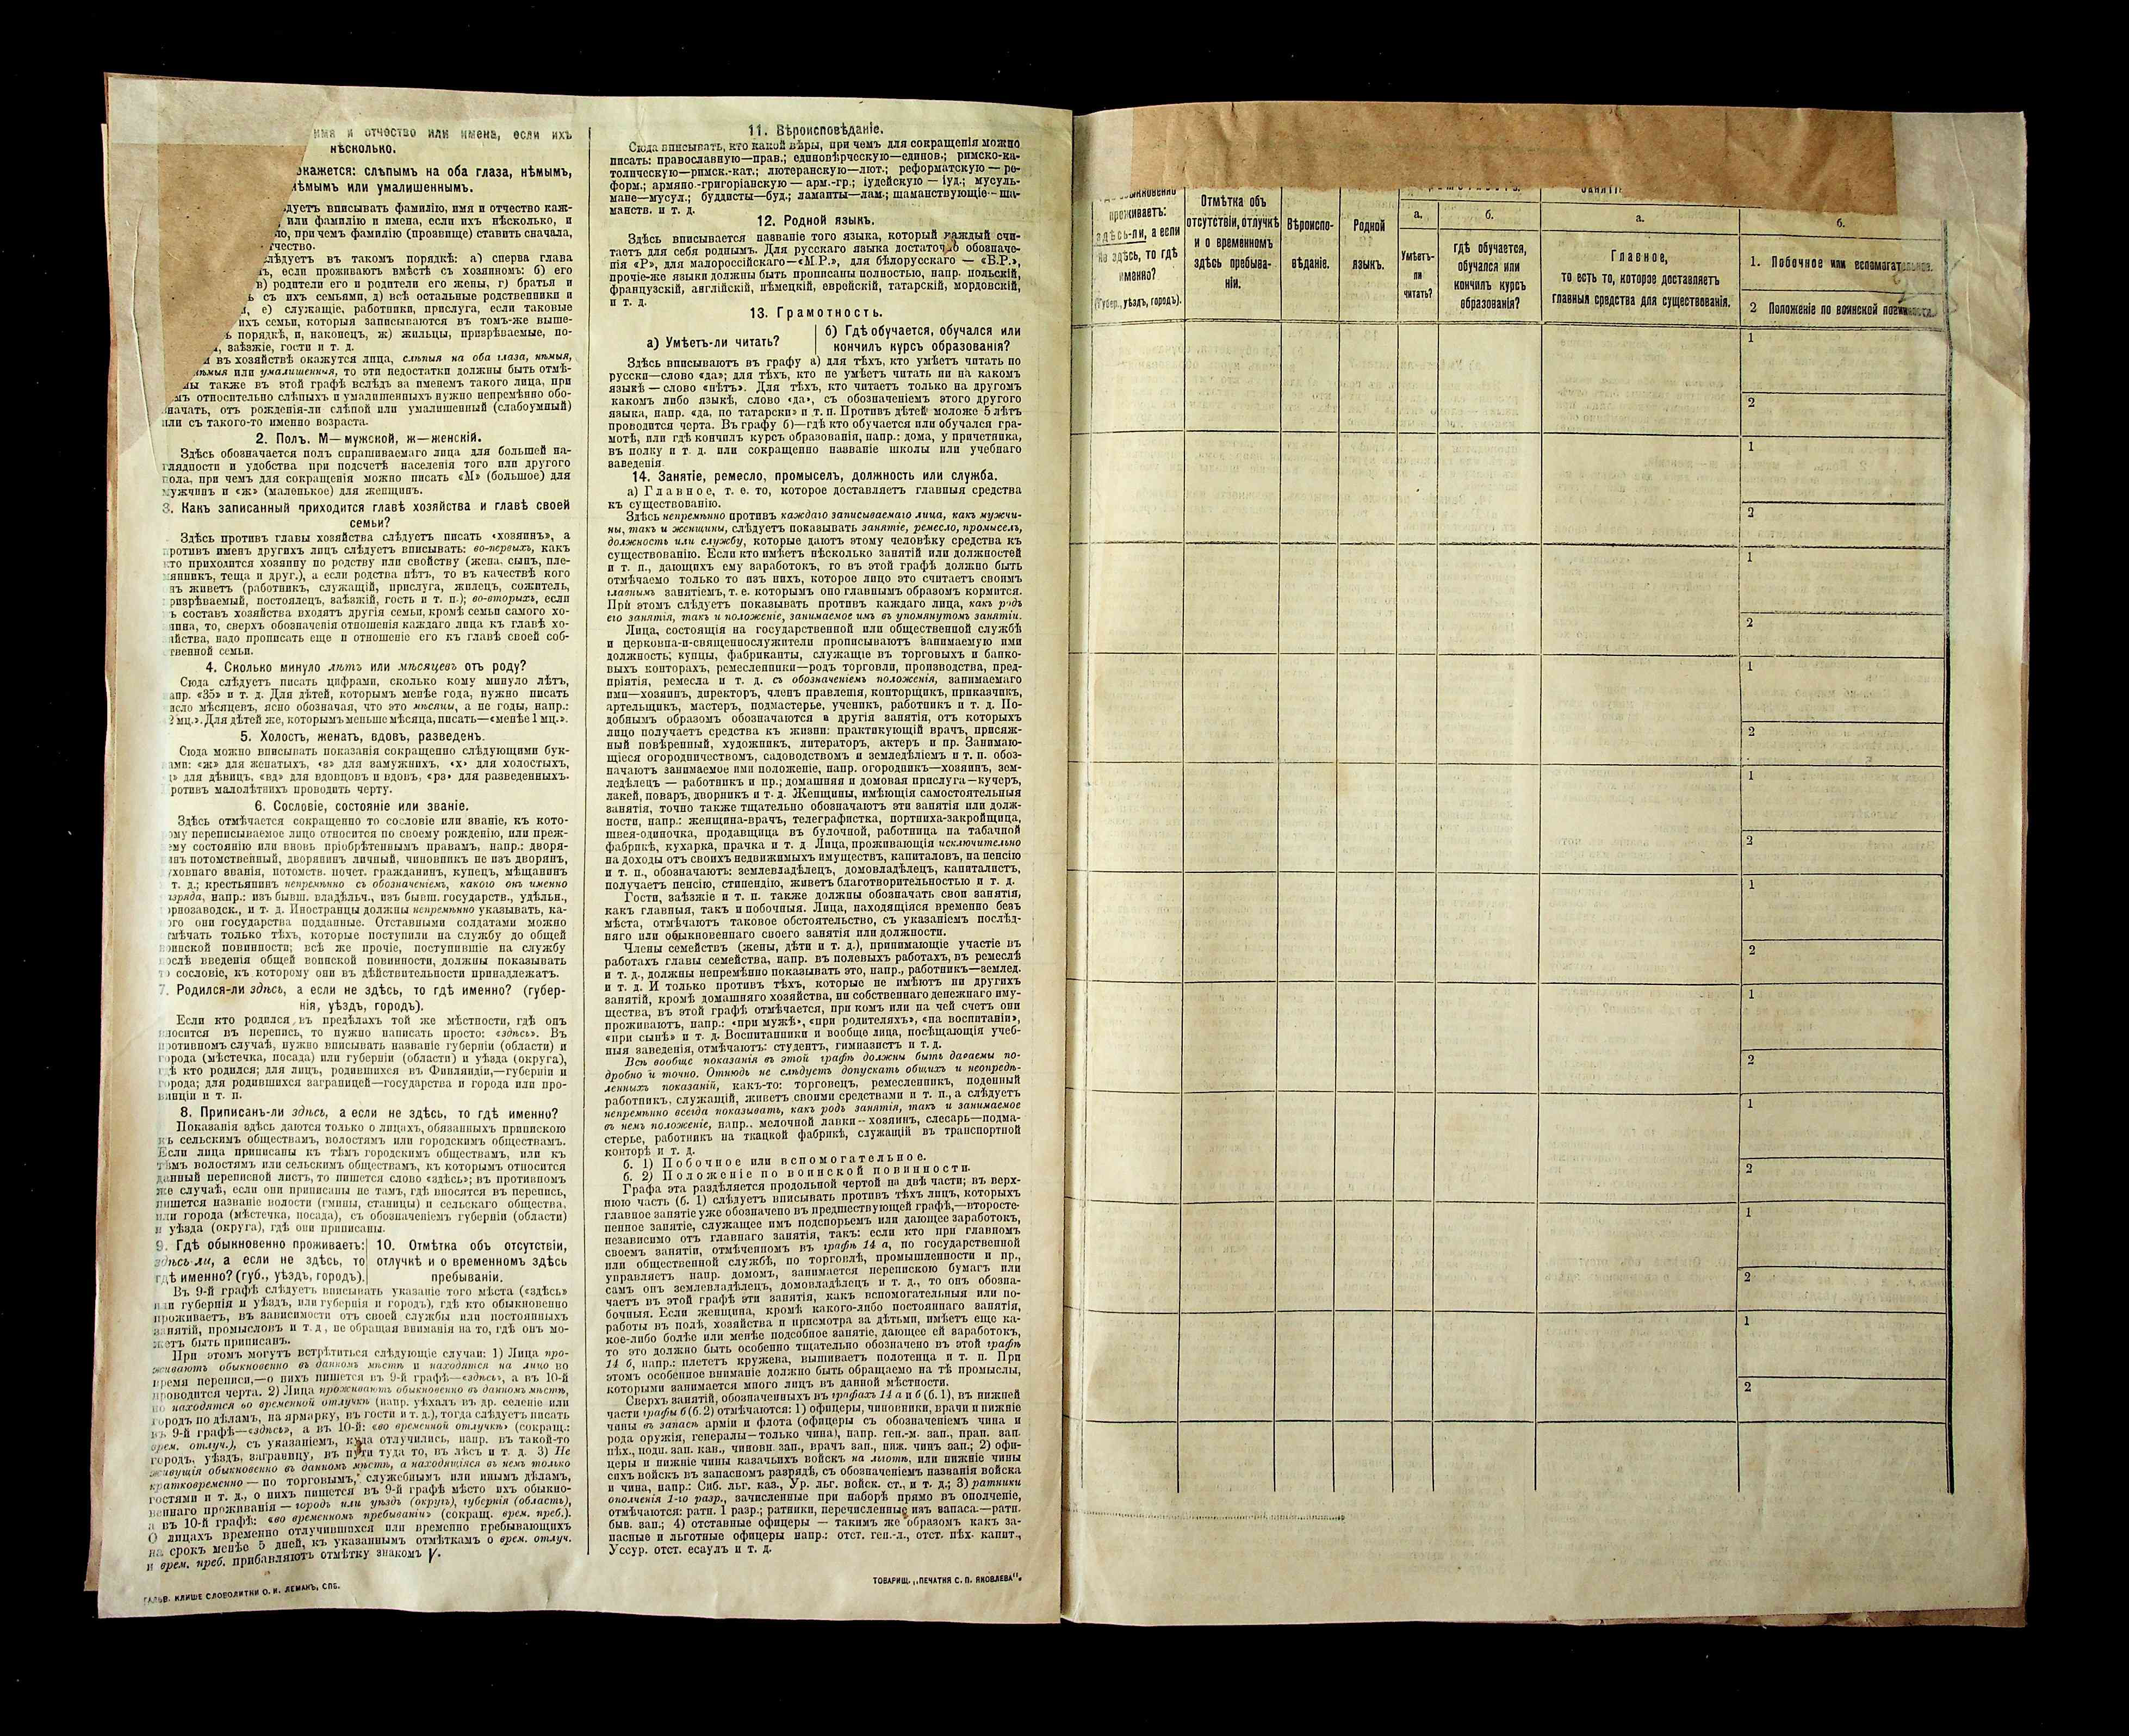 имя и отчество или имена, если ихъ
нѣсколько.
окажется: слѣпымъ на оба глаза, нѣмымъ,
нѣмымъ или умалишеннымъ.
слѣдуетъ вписывать фамилію, имя и отчество каж-
или фамилію и имена, если ихъ нѣсколько, и
при чемъ фамилію (прозвище) ставить сначала,
отчество.
слѣдуетъ въ такомъ порядкѣ: а) сперва глава
если проживаютъ вмѣстѣ съ хозяиномъ: б) его
в) родители его и родители его жены, г) братья и
съ ихъ семьями, д) всѣ остальные родственники и
е) служащіе, работники, прислуга, если таковые
ихъ семьи, которыя записываются въ томъ-же выше-
порядкѣ, и, наконецъ, ж) жильцы, призрѣваемые, по-
заѣзжіе, гости и т. д.
въ хозяйствѣ окажутся лица, слѣпыя на оба глаза, нѣмыя,
или умалишенныя, то эти недостатки должны быть отмѣ-
также въ этой графѣ вслѣдъ за именемъ такого лица, при
относительно слѣпыхъ и умалишенныхъ нужно непремѣнно обо-
значать, отъ рожденія-ли слѣпой или умалишенный (слабоумный)
или съ такого-то именно возраста.
2. Полъ. М—мужской, ж—женскій.
Здѣсь обозначается полъ спрашиваемаго лица для большей на-
глядности и удобства при подсчетѣ населенія того или другого
пола, при чемъ для сокращенія можно писать «М» (большое) для
мужчинъ и «ж» (маленькое) для женщинъ.
3. Какъ записанный приходится главѣ хозяйства и главѣ своей
семьи?
Здѣсь противъ главы хозяйства слѣдуетъ писать «хозяинъ», а
противъ именъ другихъ лицъ слѣдуетъ вписывать: во-первыхъ, какъ
кто приходится хозяину по родству или свойству (жена, сынъ, пле-
мянникъ, теща и друг.), а если родства нѣтъ, то въ качествѣ кого
онъ живетъ (работникъ, служащій, прислуга, жилецъ, сожитель,
призрѣваемый, постоялецъ, заѣзжій, гость и т. п.); во-вторыхъ, если
въ составъ хозяйства входятъ другія семьи, кромѣ семьи самого хо-
зяина, то, сверхъ обозначенія отношенія каждаго лица къ главѣ хо-
зяйства, надо прописать еще и отношеніе его къ главѣ своей соб-
ственной семьи.
4. Сколько минуло лѣтъ или мѣсяцевъ отъ роду?
Сюда слѣдуетъ писать цифрами, сколько кому минуло лѣтъ,
напр. «35» и т. д. Для дѣтей, которымъ менѣе года, нужно писать
число мѣсяцевъ, ясно обозначая, что это мѣсяцы, а не годы, напр.:
2 мц.». Для дѣтей же, которымъ меньше мѣсяца, писать—«менѣе 1 мц.».
5. Холостъ, женатъ, вдовъ, разведенъ.
Сюда можно вписывать показанія сокращенно слѣдующими бук-
вами: «ж» для женатыхъ, «з» для замужнихъ, «х» для холостыхъ,
«д» для дѣвицъ, «вд» для вдовцовъ и вдовъ, «рз» для разведенныхъ.
Противъ малолѣтнихъ проводить черту.
6. Сословіе, состояніе или званіе.
Здѣсь отмѣчается сокращенно то сословіе или званіе, къ кото-
рому переписываемое лицо относится по своему рожденію, или преж-
нему состоянію или вновь пріобрѣтеннымъ правамъ, напр.: дворя-
нинъ потомственный, дворянинъ личный, чиновникъ не изъ дворянъ,
духовнаго званія, потомств. почет. гражданинъ, купецъ, мѣщанинъ
и т. д.; крестьянинъ непремѣнно съ обозначеніемъ, какого онъ именно
разряда, напр.: изъ бывш. владѣльч., изъ бывш. государств., удѣльн.,
горнозаводск., и т. д. Иностранцы должны непремѣнно указывать, ка-
кого они государства подданные. Отставными солдатами можно
отмѣчать только тѣхъ, которые поступили на службу до общей
воинской повинности; всѣ же прочіе, поступившіе на службу
послѣ введенія общей воинской повинности, должны показывать
то сословіе, къ которому они въ дѣйствительности принадлежатъ.
7. Родился-ли здѣсь, а если не здѣсь, то гдѣ именно? (губер-
нія, уѣздъ, городъ).
Если кто родился въ предѣлахъ той же мѣстности, гдѣ онъ
вносится въ перепись, то нужно написать просто: «здѣсь». Въ
противномъ случаѣ, нужно вписывать названіе губерніи (области) и
города (мѣстечка, посада) или губерніи (области) и уѣзда (округа),
гдѣ кто родился; для лицъ, родившихся въ Финляндіи,—губерніи и
города; для родившихся заграницей—государства и города или про-
винціи и т. п.
8. Приписанъ-ли здѣсь, а если не здѣсь, то гдѣ именно?
Показанія здѣсь даются только о лицахъ, обязанныхъ припискою
къ сельскимъ обществамъ, волостямъ или городскимъ обществамъ.
Если лица приписаны къ тѣмъ городскимъ обществамъ, или къ
тѣмъ волостямъ или сельскимъ обществамъ, къ которымъ относится
данный переписной листъ, то пишется слово «здѣсь»; въ противномъ
же случаѣ, если они приписаны не тамъ, гдѣ вносятся въ перепись,
пишется названіе волости (гмины, станицы) и сельскаго общества,
или города (мѣстечка, посада), съ обозначеніемъ губерніи (области)
и уѣзда (округа), гдѣ они приписаны.
9. Гдѣ обыкновенно проживаетъ:
здѣсь-ли, а если не здѣсь, то
гдѣ именно? (губ., уѣздъ, городъ).
10. Отмѣтка объ отсутствіи,
отлучкѣ и о временномъ здѣсь
пребываніи.
Въ 9-й графѣ слѣдуетъ вписывать указаніе того мѣста («здѣсь»
или губернія и уѣздъ, или губернія и городъ), гдѣ кто обыкновенно
проживаетъ, въ зависимости отъ своей службы или постоянныхъ
занятій, промысловъ и т. д, не обращая вниманія на то, гдѣ онъ мо-
жетъ быть приписанъ.
При этомъ могутъ встрѣтиться слѣдующіе случаи: 1) Лица про-
живаютъ обыкновенно въ данномъ мѣстѣ и находятся на лицо во
время переписи,—о нихъ пишется въ 9-й графѣ—«здѣсь», а въ 10-й
проводится черта. 2) Лица проживаютъ обыкновенно въ данномъ мѣстѣ,
но находятся во временной отлучкѣ (напр. уѣхалъ въ др. селеніе или
городъ по дѣламъ, на ярмарку, въ гости и т. д.), тогда слѣдуетъ писать
въ 9-й графѣ—«здѣсь», а въ 10-й: «во временной отлучкѣ» (сокращ.:
врем. отлуч.), съ указаніемъ, куда отлучились, напр. въ такой-то
городъ, уѣздъ, заграницу, въ пути туда то, въ лѣсъ и т. д. 3) Не
живущія обыкновенно въ данномъ мѣстѣ, а находящіяся въ немъ только
кратковременно — по торговымъ, служебнымъ или инымъ дѣламъ,
гостями и т. д., о нихъ пишется въ 9-й графѣ мѣсто ихъ обыкно-
веннаго проживанія — городъ или уѣздъ (округъ), губернія (область),
а въ 10-й графѣ: «во временномъ пребываніи» (сокращ. врем. преб.).
О лицахъ временно отлучившихся или временно пребывающихъ
на срокъ менѣе 5 дней, къ указаннымъ отмѣткамъ о врем. отлуч.
и врем. преб. прибавляютъ отмѣтку знакомъ V.
ГАЛЬВ. КЛИШЕ СЛОВОЛИТНИ О. И. ЛЕМАНЪ, СПБ.
11. Вѣроисповѣданіе.
Сюда вписывать, кто какой вѣры, при чемъ для сокращенія можно
писать: православную—прав.; единовѣрческую—единов.; римско-ка-
толическую—римск.-кат.; лютеранскую—лют.; реформатскую — ре-
форм.; армяно-григоріанскую — арм.-гр.; іудейскую — іуд.; мусуль-
мане—мусул.; буддисты—буд.; ламаиты—лам.; шаманствующіе—ша-
манств. и т. д.
12. Родной языкъ.
Здѣсь вписывается названіе того языка, который каждый счи-
таетъ для себя роднымъ. Для русскаго языка достаточно обозначе-
нія «Р», для малороссійскаго—«М.Р.», для бѣлорусскаго — «Б.Р.»,
прочіе-же языки должны быть прописаны полностью, напр. польскій,
французскій, англійскій, нѣмецкій, еврейскій, татарскій, мордовскій,
и т. д.
13. Грамотность.
а) Умѣетъ-ли читать?
б) Гдѣ обучается, обучался или
кончилъ курсъ образованія?
Здѣсь вписываютъ въ графу а) для тѣхъ, кто умѣетъ читать по
русски—слово «да»; для тѣхъ, кто не умѣетъ читать ни на какомъ
языкѣ — слово «нѣтъ». Для тѣхъ, кто читаетъ только на другомъ
какомъ либо языкѣ, слово «да», съ обозначеніемъ этого другого
языка, напр. «да, по татарски» и т. п. Противъ дѣтей моложе 5 лѣтъ
проводится черта. Въ графу б)—гдѣ кто обучается или обучался гра-
мотѣ, или гдѣ кончилъ курсъ образованія, напр.: дома, у причетника,
въ полку и т. д. или сокращенно названіе школы или учебнаго
заведенія.
14. Занятіе, ремесло, промыселъ, должность или служба.
а) Главное, т. е. то, которое доставляетъ главныя средства
къ существованію.
Здѣсь непремѣнно противъ каждаго записываемаго лица, какъ мужчи-
ны, такъ и женщины, слѣдуетъ показывать занятіе, ремесло, промыселъ,
должность или службу, которые даютъ этому человѣку средства къ
существованію. Если кто имѣетъ нѣсколько занятій или должностей
и т. п., дающихъ ему заработокъ, то въ этой графѣ должно быть
отмѣчаемо только то изъ нихъ, которое лицо это считаетъ своимъ
главнымъ занятіемъ, т. е. которымъ оно главнымъ образомъ кормится.
При этомъ слѣдуетъ показывать противъ каждаго лица, какъ родъ
его занятія, такъ и положеніе, занимаемое имъ въ упомянутомъ занятіи.
Лица, состоящія на государственной или общественной службѣ
и церковно-и-священнослужители прописываютъ занимаемую ими
должность; купцы, фабриканты, служащіе въ торговыхъ и банко-
выхъ конторахъ, ремесленники—родъ торговли, производства, пред-
пріятія, ремесла и т. д. съ обозначеніемъ положенія, занимаемаго
ими—хозяинъ, директоръ, членъ правленія, конторщикъ, приказчикъ,
артельщикъ, мастеръ, подмастерье, ученикъ, работникъ и т. д. По-
добнымъ образомъ обозначаются и другія занятія, отъ которыхъ
лицо получаетъ средства къ жизни: практикующій врачъ, присяж-
ный повѣренный, художникъ, литераторъ, актеръ и пр. Занимаю-
щіеся огородничествомъ, садоводствомъ и земледѣліемъ и т. п. обоз-
начаютъ занимаемое ими положеніе, напр. огородникъ—хозяинъ, зем-
ледѣлецъ — работникъ и пр.; домашняя и домовая прислуга—кучеръ,
лакей, поваръ, дворникъ и т. д. Женщины, имѣющія самостоятельныя
занятія, точно также тщательно обозначаютъ эти занятія или долж-
ности, напр.: женщина-врачъ, телеграфистка, портниха-закройщица,
швея-одиночка, продавщица въ булочной, работница на табачной
фабрикѣ, кухарка, прачка и т. д Лица, проживающія исключительно
на доходы отъ своихъ недвижимыхъ имуществъ, капиталовъ, на пенсію
и т. п., обозначаютъ: землевладѣлецъ, домовладѣлецъ, капиталистъ,
получаетъ пенсію, стипендію, живетъ благотворительностью и т. д.
Гости, заѣзжіе и т. п. также должны обозначать свои занятія,
какъ главныя, такъ и побочныя. Лица, находящіяся временно безъ
мѣста, отмѣчаютъ таковое обстоятельство, съ указаніемъ послѣд-
няго или обыкновеннаго своего занятія или должности.
Члены семействъ (жены, дѣти и т. д.), принимающіе участіе въ
работахъ главы семейства, напр. въ полевыхъ работахъ, въ ремеслѣ
и т. д., должны непремѣнно показывать это, напр., работникъ—землед.
и т. д. И только противъ тѣхъ, которые не имѣютъ ни другихъ
занятій, кромѣ домашняго хозяйства, ни собственнаго денежнаго иму-
щества, въ этой графѣ отмѣчается, при комъ или на чей счетъ они
проживаютъ, напр.: «при мужѣ», «при родителяхъ», «на воспитаніи»,
«при сынѣ» и т. д. Воспитанники и вообще лица, посѣщающія учеб-
ныя заведенія, отмѣчаютъ: студентъ, гимназистъ и т. д.
Всѣ вообще показанія въ этой графѣ должны быть даваемы по-
дробно и точно. Отнюдь не слѣдуетъ допускать общихъ и неопредѣ-
ленныхъ показаній, какъ-то: торговецъ, ремесленникъ, поденный
работникъ, служащій, живетъ своими средствами и т. п., а слѣдуетъ
непремѣнно всегда показывать, какъ родъ занятія, такъ и занимаемое
въ немъ положеніе, напр., мелочной лавки—хозяинъ, слесарь—подма-
стерье, работникъ на ткацкой фабрикѣ, служащій въ транспортной
конторѣ и т. д.
б. 1) Побочное или вспомогательное.
б. 2) Положеніе по воинской повинности.
Графа эта раздѣляется продольной чертой на двѣ части; въ верх-
нюю часть (б. 1) слѣдуетъ вписывать противъ тѣхъ лицъ, которыхъ
главное занятіе уже обозначено въ предшествующей графѣ,—второсте-
пенное занятіе, служащее имъ подспорьемъ или дающее заработокъ,
независимо отъ главнаго занятія, такъ: если кто при главномъ
своемъ занятіи, отмѣченномъ въ графѣ 14 а, по государственной
или общественной службѣ, по торговлѣ, промышленности и пр.,
управляетъ напр. домомъ, занимается перепискою бумагъ или
самъ онъ землевладѣлецъ, домовладѣлецъ и т. д., то онъ обозна-
чаетъ въ этой графѣ эти занятія, какъ вспомогательныя или по-
бочныя. Если женщина, кромѣ какого-либо постояннаго занятія,
работы въ полѣ, хозяйства и присмотра за дѣтьми, имѣетъ еще ка-
кое-либо болѣе или менѣе подсобное занятіе, дающее ей заработокъ,
то это должно быть особенно тщательно обозначено въ этой графѣ
14 б, напр.: плететъ кружева, вышиваетъ полотенца и т. п. При
этомъ особенное вниманіе должно быть обращаемо на тѣ промыслы,
которыми занимается много лицъ въ данной мѣстности.
Сверхъ занятій, обозначенныхъ въ графахъ 14 а и б (б. 1), въ нижней
части графы б (б. 2) отмѣчаются: 1) офицеры, чиновники, врачи и нижніе
чины въ запасѣ арміи и флота (офицеры съ обозначеніемъ чина и
рода оружія, генералы—только чина), напр. ген.-м. зап., прап. зап.
пѣх., подп. зап. кав., чиновн. зап., врачъ зап., ниж. чинъ зап.; 2) офи-
церы и нижніе чины казачьихъ войскъ на льготѣ, или нижніе чины
сихъ войскъ въ запасномъ разрядѣ, съ обозначеніемъ названія войска
и чина, напр.: Сиб. льг. каз., Ур. льг. войск. ст., и т. д.; 3) ратники
ополченія 1-го разр., зачисленные при наборѣ прямо въ ополченіе,
отмѣчаются: ратн. 1 разр.; ратники, перечисленные изъ запаса—ратн.
быв. зап.; 4) отставные офицеры — такимъ же образомъ какъ за-
пасные и льготные офицеры напр.: отст. ген.-л., отст. пѣх. капит.,
Уссур. отст. есаулъ и т. д.
ТОВАРИЩ. „ПЕЧАТНЯ С. П. ЯКОВЛЕВА".
проживаетъ:
здѣсь-ли, а если
не здѣсь, то гдѣ
именно?
(Губер., уѣздъ, городъ).
Отмѣтка объ
отсутствіи, отлучкѣ
и о временномъ
здѣсь пребыва-
ніи.
Вѣроиспо-
вѣданіе.
Родной
языкъ.
а.
Умѣетъ-
ли
читать?
б.
гдѣ обучается,
обучался или
кончилъ курсъ
образованія?
а.
Главное,
то есть то, которое доставляетъ
главныя средства для существованія.
б.
1. Побочное или вспомогательное.
2 Положеніе по воинской повинности
1
2
1
2
1
2
1
2
1
2
1
2
1
2
1
2
1
2
1
2